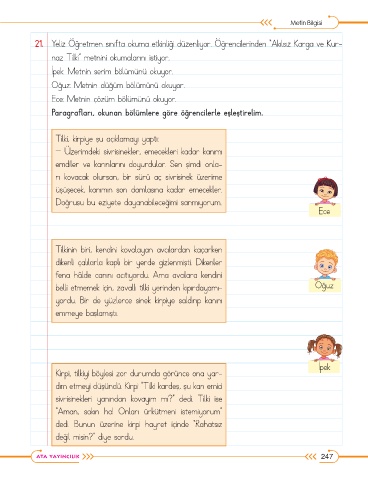 Metin Bilgisi
21. Yeliz Öğretmen sınıfta okuma etkinliği düzenliyor. Öğrencilerinden "Akılsız Karga ve Kur-
naz Tilki" metnini okumalarını istiyor.
İpek: Metnin serim bölümünü okuyor.
Oğuz: Metnin düğüm bölümünü okuyor.
Ece: Metnin çözüm bölümünü okuyor.
Paragrafları, okunan bölümlere göre öğrencilerle eşleştirelim.
Tilki, kirpiye şu açıklamayı yaptı:
– Üzerimdeki sivrisinekler, emecekleri kadar kanımı
emdiler ve karınlarını doyurdular. Sen şimdi onla-
rı kovacak olursan, bir sürü aç sivrisinek üzerime
üşüşecek, kanımın son damlasına kadar emecekler.
Doğrusu bu eziyete dayanabileceğimi sanmıyorum.
Ece
Tilkinin biri, kendini kovalayan avcılardan kaçarken
dikenli çalılarla kaplı bir yerde gizlenmişti. Dikenler
fena hâlde canını acıtıyordu. Ama avcılara kendini
belli etmemek için, zavallı tilki yerinden kıpırdayamı-
yordu. Bir de yüzlerce sinek kirpiye saldırıp kanını
emmeye başlamıştı.
Oğuz
İpek
Kirpi, tilkiyi böylesi zor durumda görünce ona yar-
dım etmeyi düşündü. Kirpi "Tilki kardeş, şu kan emici
sivrisinekleri yanından kovayım mı?" dedi. Tilki ise
"Aman, sakın ha! Onları ürkütmeni istemiyorum"
dedi. Bunun üzerine kirpi hayret içinde "Rahatsız
değil misin?" diye sordu.
ATA YAYINCILIK
247